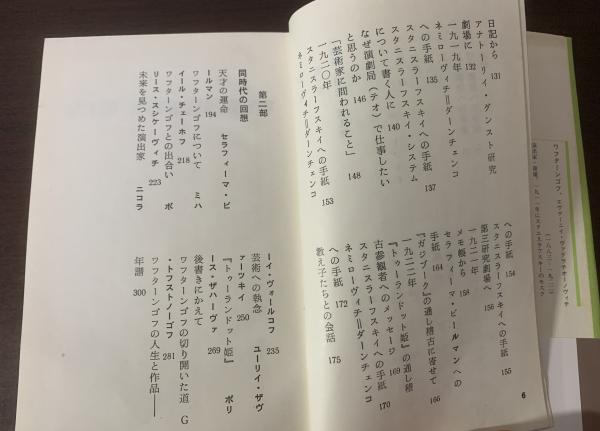 日記から 131
アナトーリイ・グンスト研究
劇場に 132
一九一九年
ネミローヴィチ＝ダーンチェンコ
への手紙 135
スタニスラーフスキイへの手紙 137
スタニスラーフスキイ・システム
について書く人に 140
なぜ演劇局（テオ）で仕事したい
と思うのか 146
「芸術家に問われること」 148
一九二〇年
スタニスラーフスキイへの手紙 153
ネミローヴィチ＝ダーンチェンコ
への手紙 154
スタニスラーフスキイへの手紙 155
第三研究劇場へ 156
一九二一年
メモ帳から 158
セラフィーマ・ビールマンへの
手紙 164
『ガジブーク』の通し稽古に寄せて 166
一九二二年
『トゥーランドット姫』の通し稽
古参観者へのメッセージ 169
スタニスラーフスキイへの手紙 170
ネミローヴィチ＝ダーンチェンコ
への手紙 172
教え子たちとの会話 175
6
第二部
同時代の回想
天才の運命 セラフィーマ・ビ
ールマン 194
ワフターンゴフについて ミハ
イール・チェーホフ 218
ワフターンゴフとの出合い ボ
リース・スシケーヴィチ 223
未来を見つめた演出家 ニコラ
ーイ・ヴォールコフ 235
芸術への執念 ユーリイ・ザヴ
ァーツキイ 250
『トゥーランドット姫』 ボリ
ース・ザハーヴァ 269
後書きにかえて
ワフターンゴフの切り開いた道 G
・トフストノーゴフ 281
ワフターンゴフの人生と作品――
年譜 300